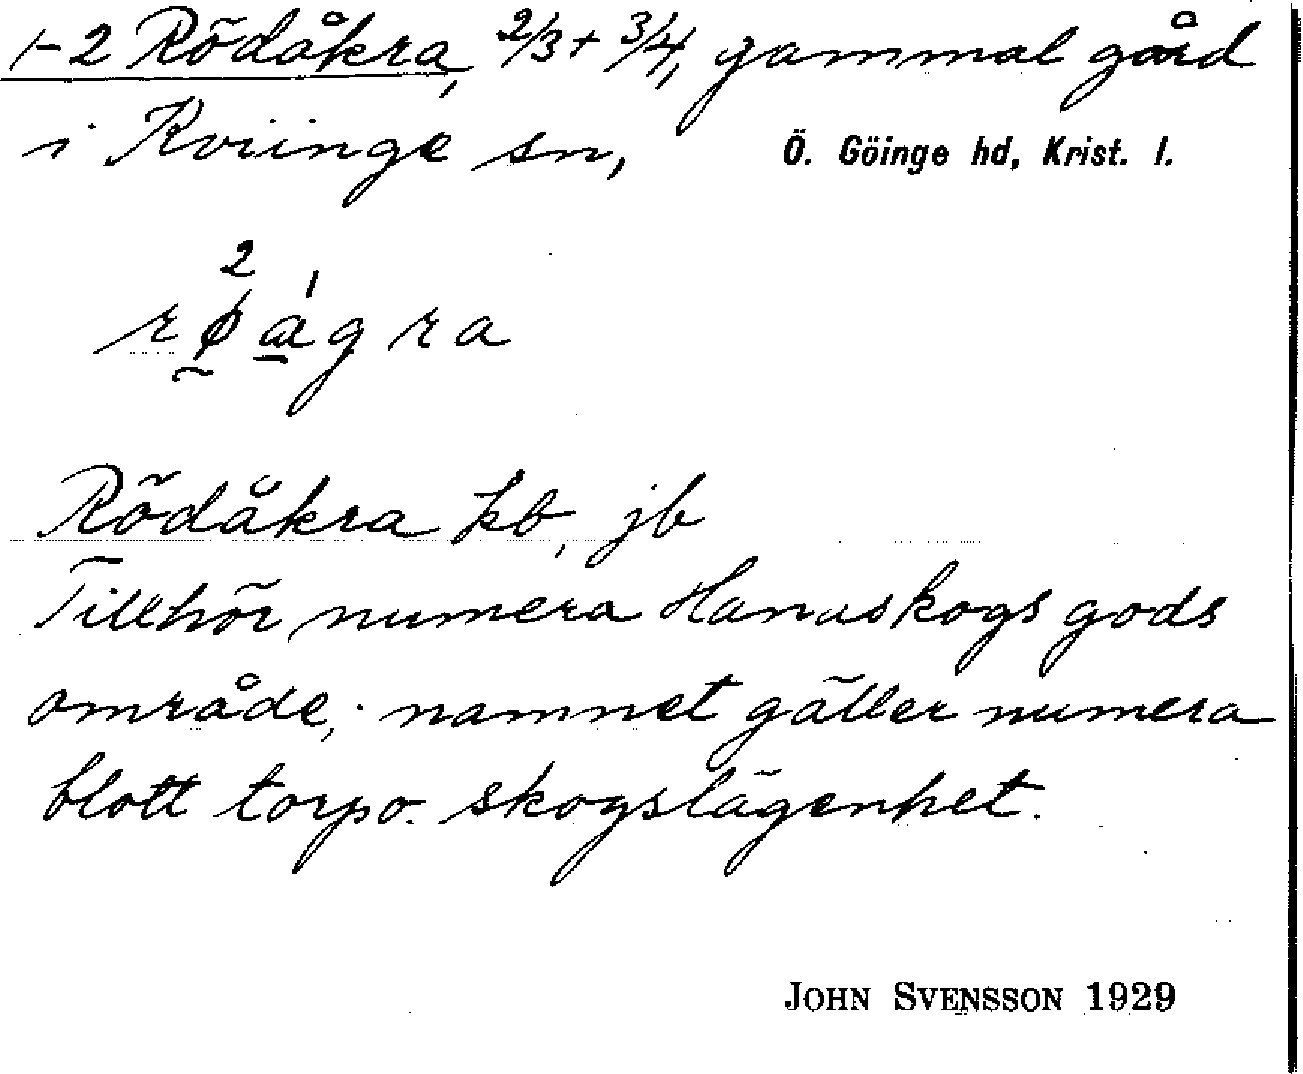 1-2 Rödåkra, 2/3 + 3/4, gammal gård
i Kviinge sn, Ö. Göinge hd, Krist. l.
2 1
rø̰a̱gra
Rödåkra kb, jb
Tillhör numera Hanaskogs gods
område; namnet gäller numera
blott torp o. skogslägenhet.
JOHN SVENSSON 1929